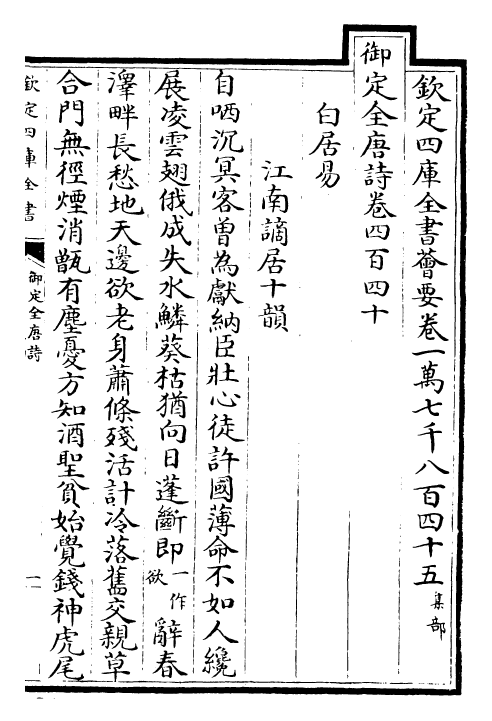 欽定四庫全書薈要卷一萬七千八百四十五集部
御定全唐詩卷四百四十
白居易
江南謫居十韻
自哂沉冥客曾為獻納臣壯心徒許國薄命不如人纔
展凌雲翅俄成失水鱗葵枯猶向日蓬斷即一作欲辭春
澤畔長愁地天邊欲老身蕭條殘活計冷落舊交親草
合門無徑煙消甑有塵憂方知酒聖貧始覺錢神虎尾
欽定四庫全書
御定全唐詩
一